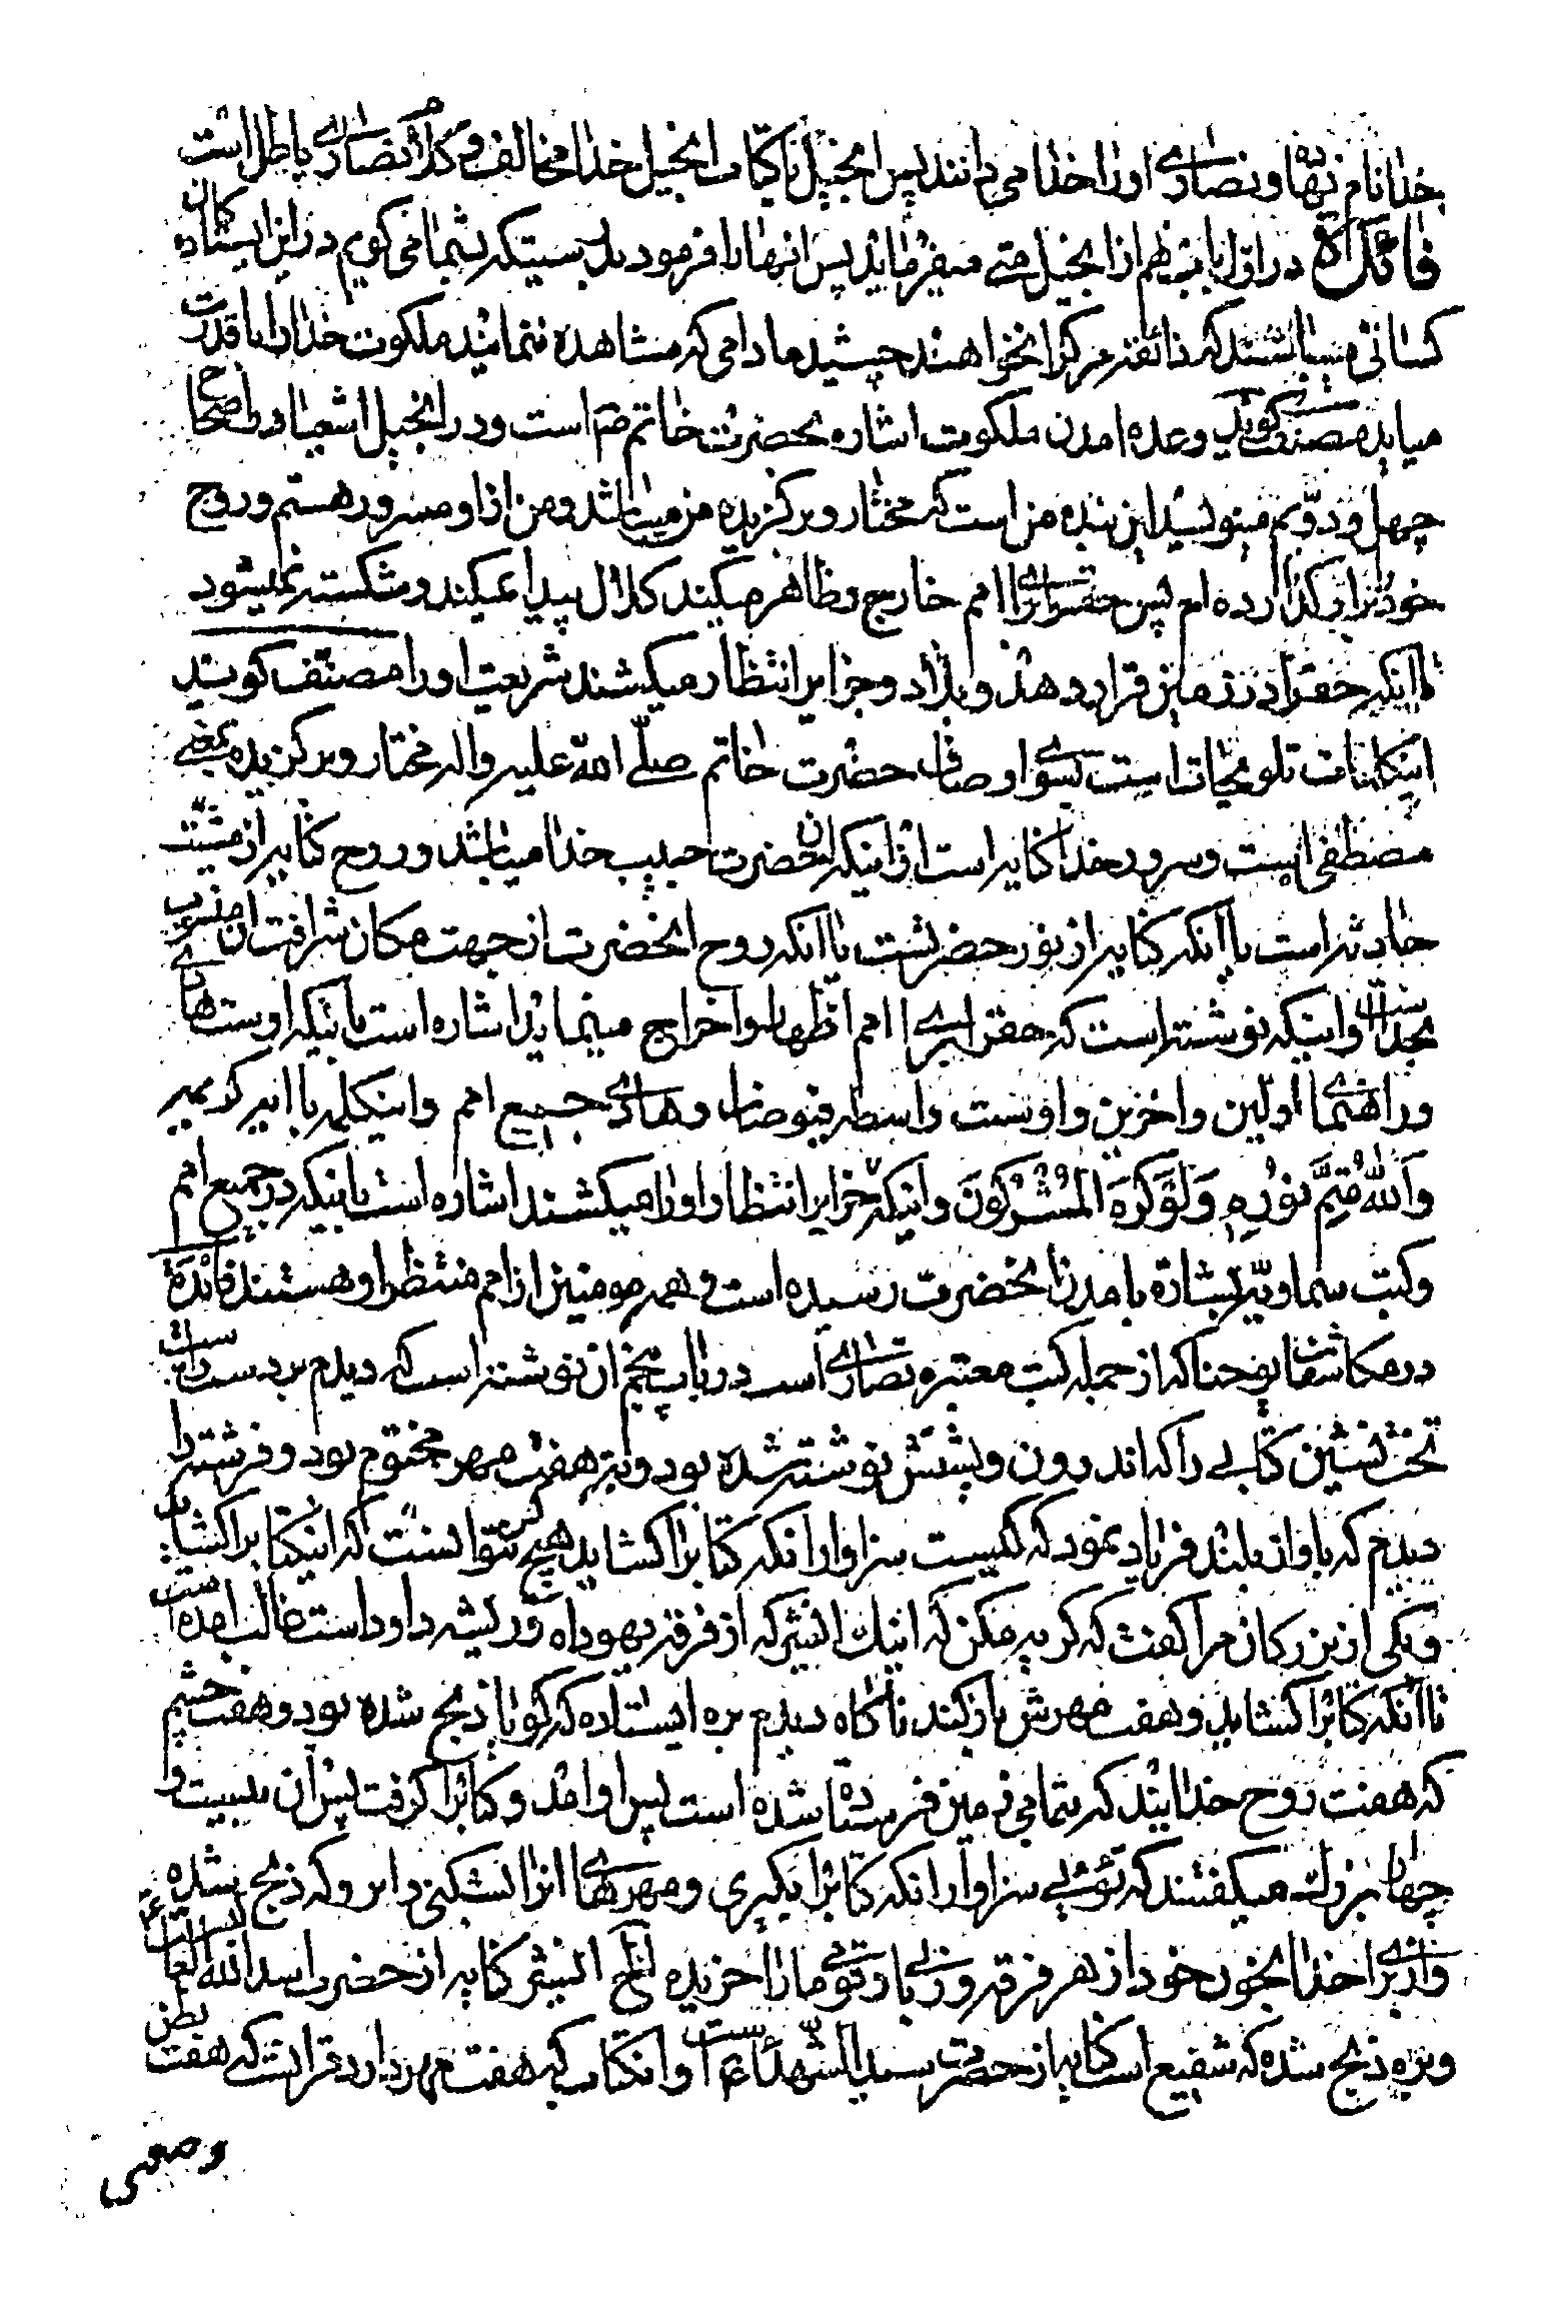 خدا نام نهاد و نصاری او را خدا می دانند پس انجیل با کتاب انجیل خدا مخالف و کلام نصاری باطل است
فائدة در اول باب نهم از انجیل متی میفرماید پس انها را فرمود بدرستیکه بشما می کویم در این ایستاده کان
کسانی میباشند که ذائقه مرک را نخواهند چشید مادامی که مشاهده ننمایند ملکوت خدا را با قدرت
میاید مصنف کوید وعده امدن ملکوت اشاره بحضرت خاتم ص است و در انجیل اشعیا در اصحاح
چهل و دویم مینویسد این بنده من است که مختار و برکزیده من میباشد و من از او مسرور هستم و روح
خود را بر او کذارده ام پس حق را برای امم خارج و ظاهر میکند کلال پیدا نمیکند و شکسته نمیشود
تا اینکه حق را در زمین قرار دهد و بلاد و جزایر انتظار میکشند شریعت او را مصنف کوید
اینکلمات تلویحات است بسوی اوصاف حضرت خاتم صلی الله علیه واله مختار و برکزیده بمعنی
مصطفی است و سرور خدا کنایه است از اینکه ان حضرت حبیب خدا میباشد و روح کنایه از مشیت
حادثه است یا انکه کنایه از نور حضرتست یا انکه روح انحضرت از جهت مکان شرافت ان منسوب
بخدا است و اینکه نوشته است که حق را برای امم اظهار و اخراج مینماید اشاره است باینکه اوست هادی
و راهنمای اولین و اخرین و اوست واسطه فیوضات و هادی جمیع امم و اینکلمه با ایه کریمه
والله متم نوره ولو کره المشرکون و اینکه جزایر انتظار او را میکشند اشاره است باینکه در جمیع امم
و کتب سماویه بشارة بامدن انحضرت رسیده است و همه مومنین از امم منتظر او هستند فائدة
در مکاشفات یوحنا که از جمله کتب معتبره نصاری است در باب پنجم ان نوشته است که دیدم بر دست راست
تخت نشین کتابی را که اندرون و پشتش نوشته شده بود و به هفت مهر مختوم بود و فرشته را
دیدم که باواز بلند فریاد نمود که کیست سزاوار انکه کتاب را کشاید هیچ کس نتوانست که اینکتاب را کشاید
و یکی از بزرکان مرا کفت که کریه مکن که اینک انشیر که از فرقه یهوداه و ریشه داود است غالب امده است
تا انکه کتاب را کشاید و هفت مهرش باز کند ناکاه دیدم بره ایستاده که کویا ذبح شده بود و هفت چشم
که هفت روح خدایند که بتمامی زمین فرستاده شده است پس او امد و کتاب را کرفت پس ان بیست و
چهار بزرک میکفتند که توئی سزاوار انکه کتاب را بکیری و مهرهای انرا بشکنی از انرو که ذبح شده
و از برای خدا بخون خود از هر فرقه و زبان و قومی ما را خریده الخ انشیر کنایه از حضرت اسد الله الغالب است
و بره ذبح شده که شفیع است کنایه از حضرت سید الشهداء ع است و انکتاب که هفت مهر دارد قرانست که هفت بطن